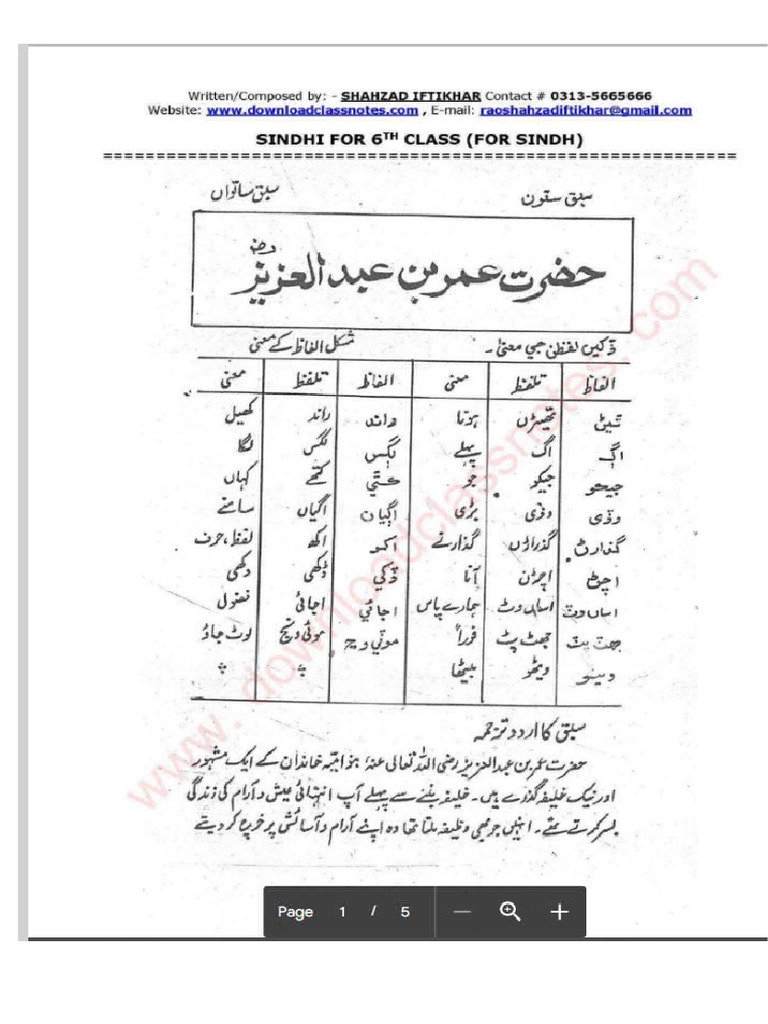 Written/Composed by: - SHAHZAD IFTIKHAR Contact # 0313-5665666
Website: www.downloadclassnotes.com , E-mail: raoshahzadiftikhar@gmail.com
SINDHI FOR 6TH CLASS (FOR SINDH)
================================================================
سبق ستون سبق ساتواں
حضرت عمر بن عبد العزيز رضہ
ڏکين لفظن جي معنیٰ۔ مشکل الفاظ کے معنی
الفاظ تلفظ معنی الفاظ تلفظ معنی
ٿيڻ تھیڑں بڑنا راند راند کھیل
اڳ اگ پہلے لڳس لگس لگا
جيڪو جیکو جو ڪٿي کتھے کہاں
وڏي وڈی بڑی اڳيان اگیاں سامنے
گذارڻ گذراڑں گذارنے اکر اکھ لفظ، حرف
اچڻ اچڑن آنا ڏکي ڈکھی دکھی
اسان وٽ اساں وٹ ہمارے پاس اجائي اجائی فضول
جهٽ پٽ جھٹ پٹ فوراً موٽي وڃ موٹی ونج لوٹ جاؤ
ويٺو ویٹھو بیٹھا ۾ پہ
سبق کا اردو ترجمہ
حضرت عمر بن عبد العزیز رضی اللہ تعالی عنہٗ بنو امیّہ خاندان کے ایک مشہور
اور نیک خلیفہ گذرے ہیں۔ خلیفہ بننے سے پہلے آپ انتہائی عیش و آرام کی زندگی
بسر کرتے تھے۔ انہیں جو بھی وظیفہ ملتا تھا وہ اپنے آرام و آسائش پر خرچ کر دیتے
www.downloadclassnotes.com
Page 1 / 5